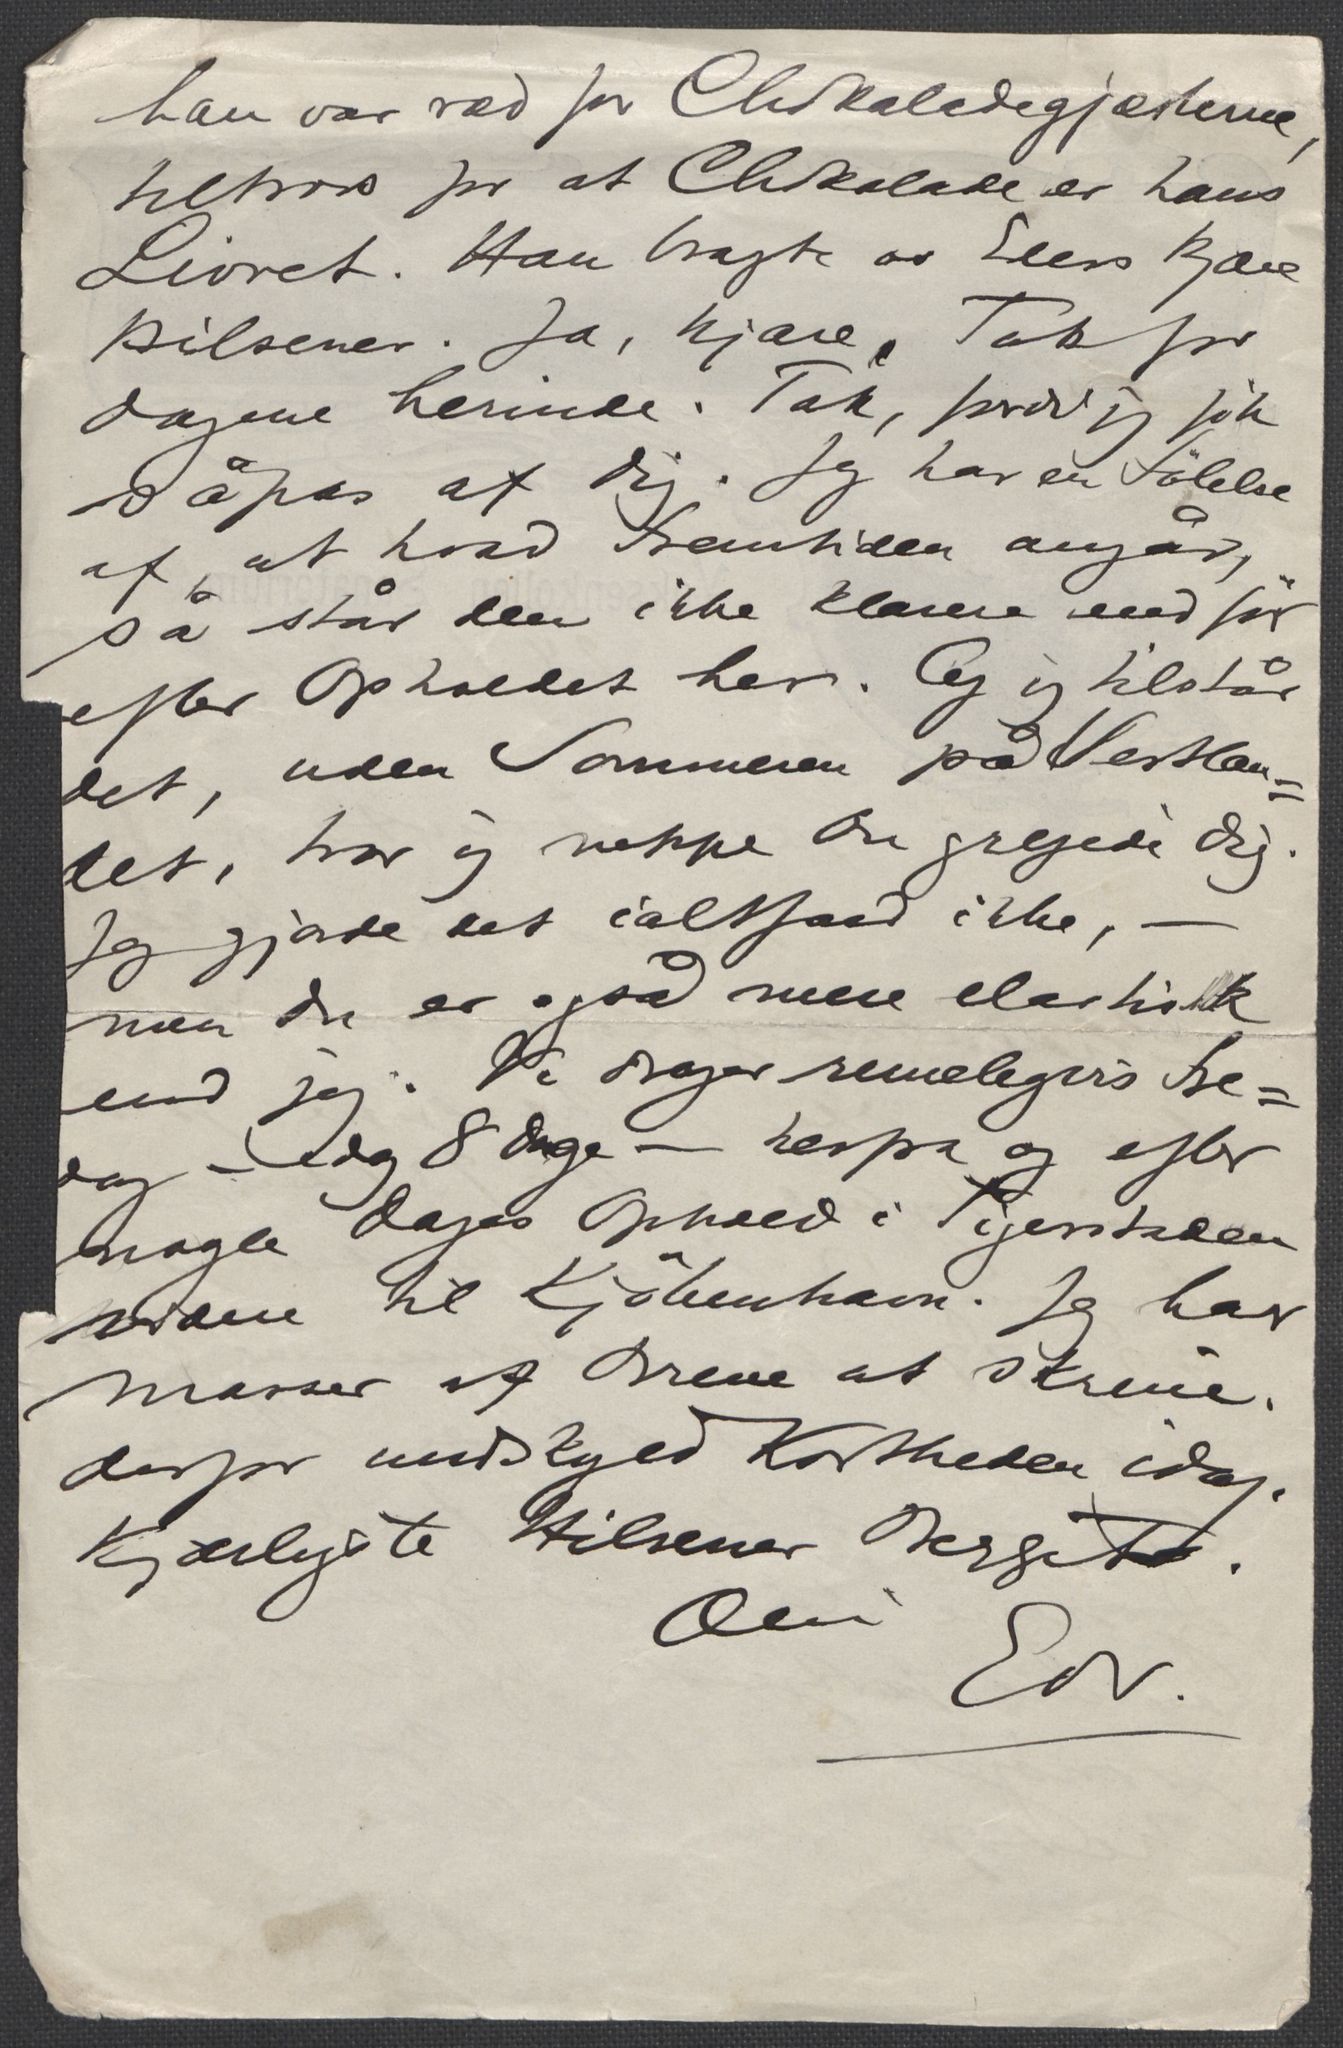 han var ræd for Chokoladegjæsterne,
tiltros for at Chokolade er hans
Livret. Han bragte os Eders kjære
Hilsener. Ja, kjære, Tak for
dagene herinde. Tak, fordi jeg fik
såpas af Dig. Jeg har en Følelse
af, at hvad Fremtiden angår,
så står den ikke klarere end før
efter Opholdet her. Og jeg tilstår
det, uden Sommeren på Vestlan=
det, tror jeg neppe Du greiede Dig.
Jeg gjorde det ialtfald ikke, —
men Du er også mere elastisk
end jeg. Vi drager rimeligvis Fre=
dag — idag 8 Dage — herfra og efter
nogle Dages Ophold i Tigerstaden
videre til Kjöbenhavn. Jeg har
Masser af Breve at skrive,
derfor undskyld Kortheden idag.
Kjærligste Hilsener Bergit.
Din
Edv.